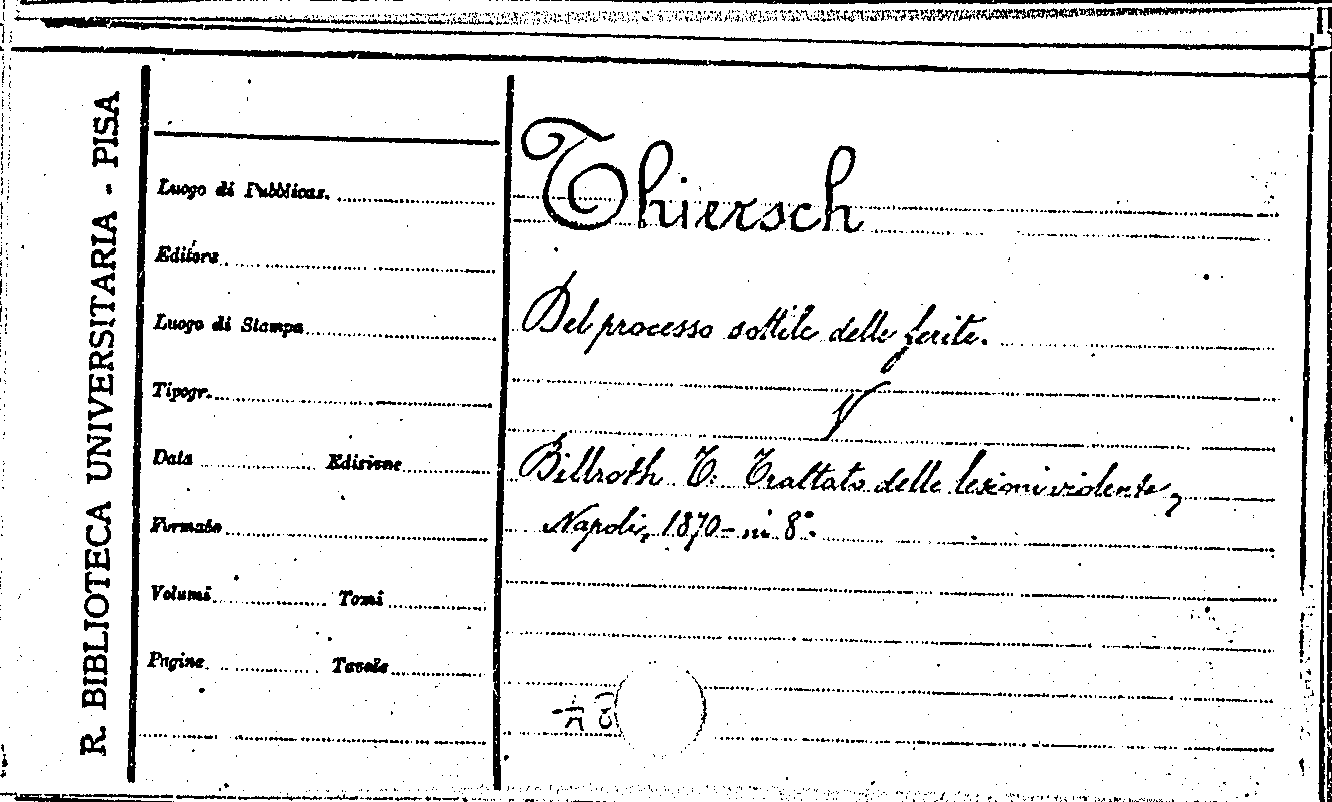 R. BIBLIOTECA UNIVERSITARIA - PISA
Luogo di Pubblicas.
Editore
Luogo di Stampa
Tipogr.
Data Edizione
Formato
Volumi Tomi
Pagine Tavole
Thiersch
Del processo sottile delle ferite.
V
Billroth T. Trattato delle lesioni violente,
Napoli, 1870 - in 8°.